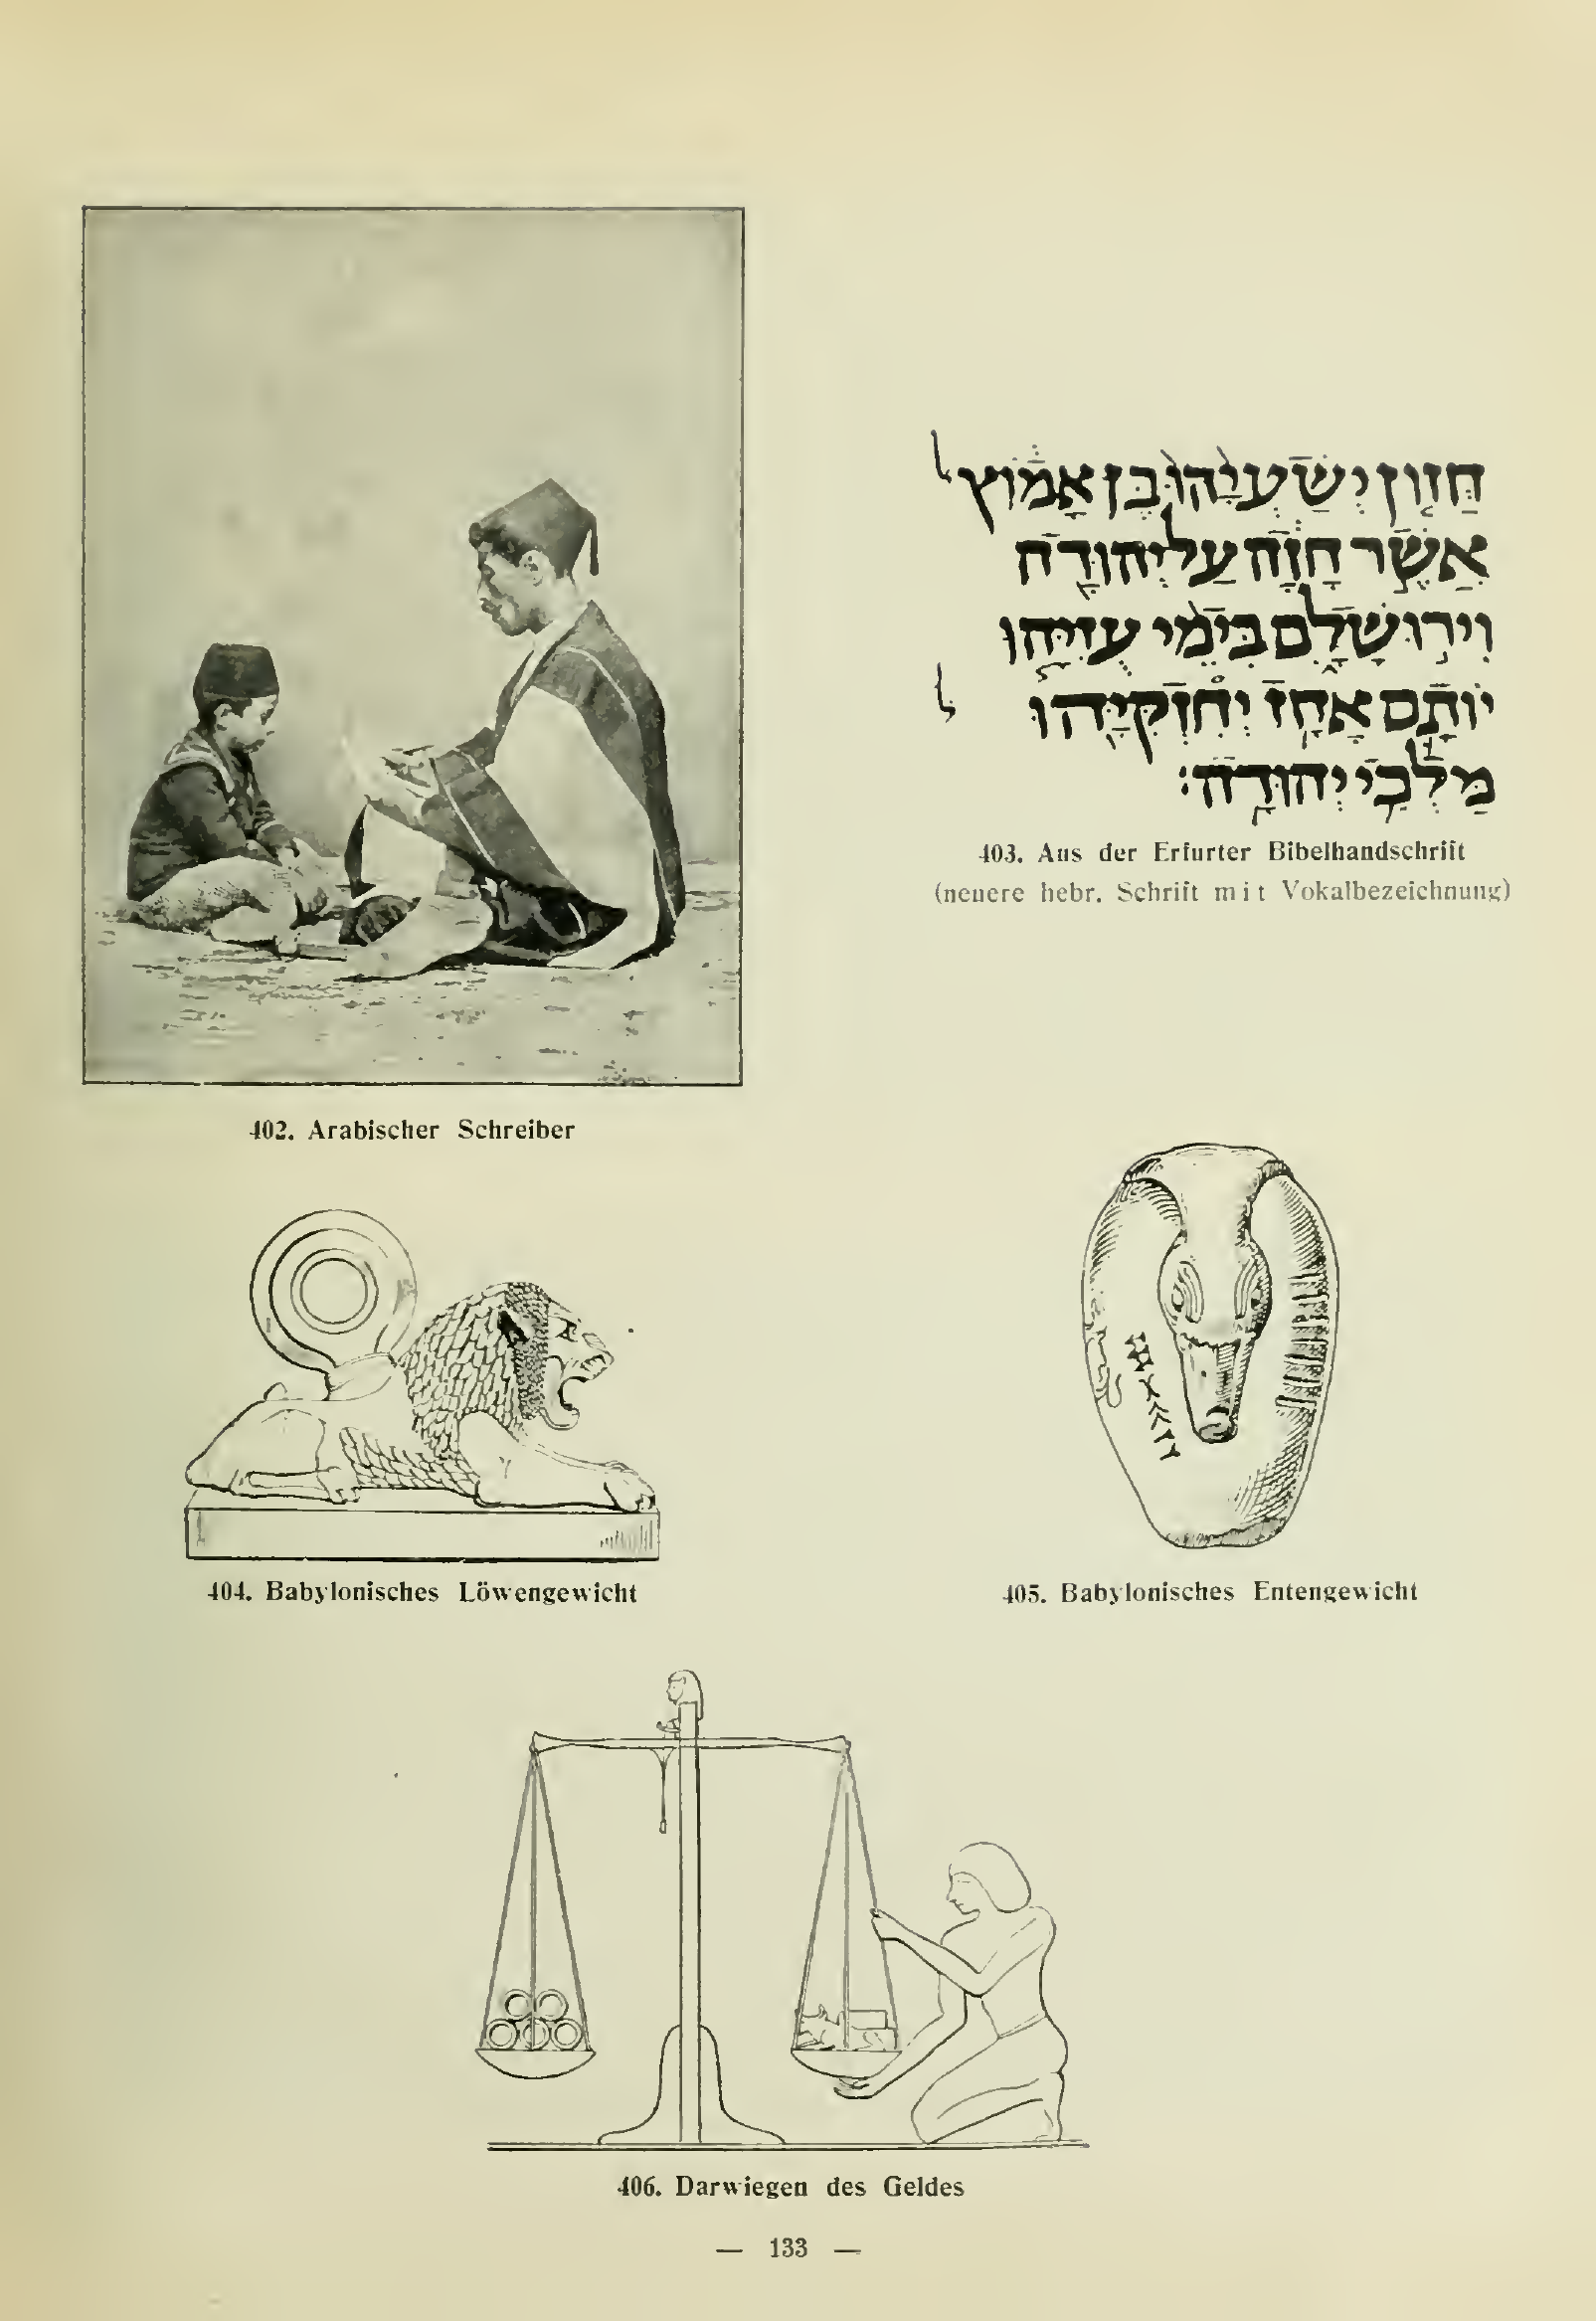 חֲזוֹן יְשַׁעְיָהוּ בֶן אָמוֹץ
אֲשֶׁר חָזָה עַל יְהוּדָה
וִירוּשָׁלִָם בִּימֵי עֻזִּיָּהוּ
יוֹתָם אָחָז יְחִזְקִיָּהוּ
מַלְכֵי יְהוּדָה׃
403. Aus der Erfurter Bibelhandschrift
(neuere hebr. Schrift mit Vokalbezeichnung)
402. Arabischer Schreiber
404. Babylonisches Löwengewicht
405. Babylonisches Entengewicht
406. Darwiegen des Geldes
— 133 —